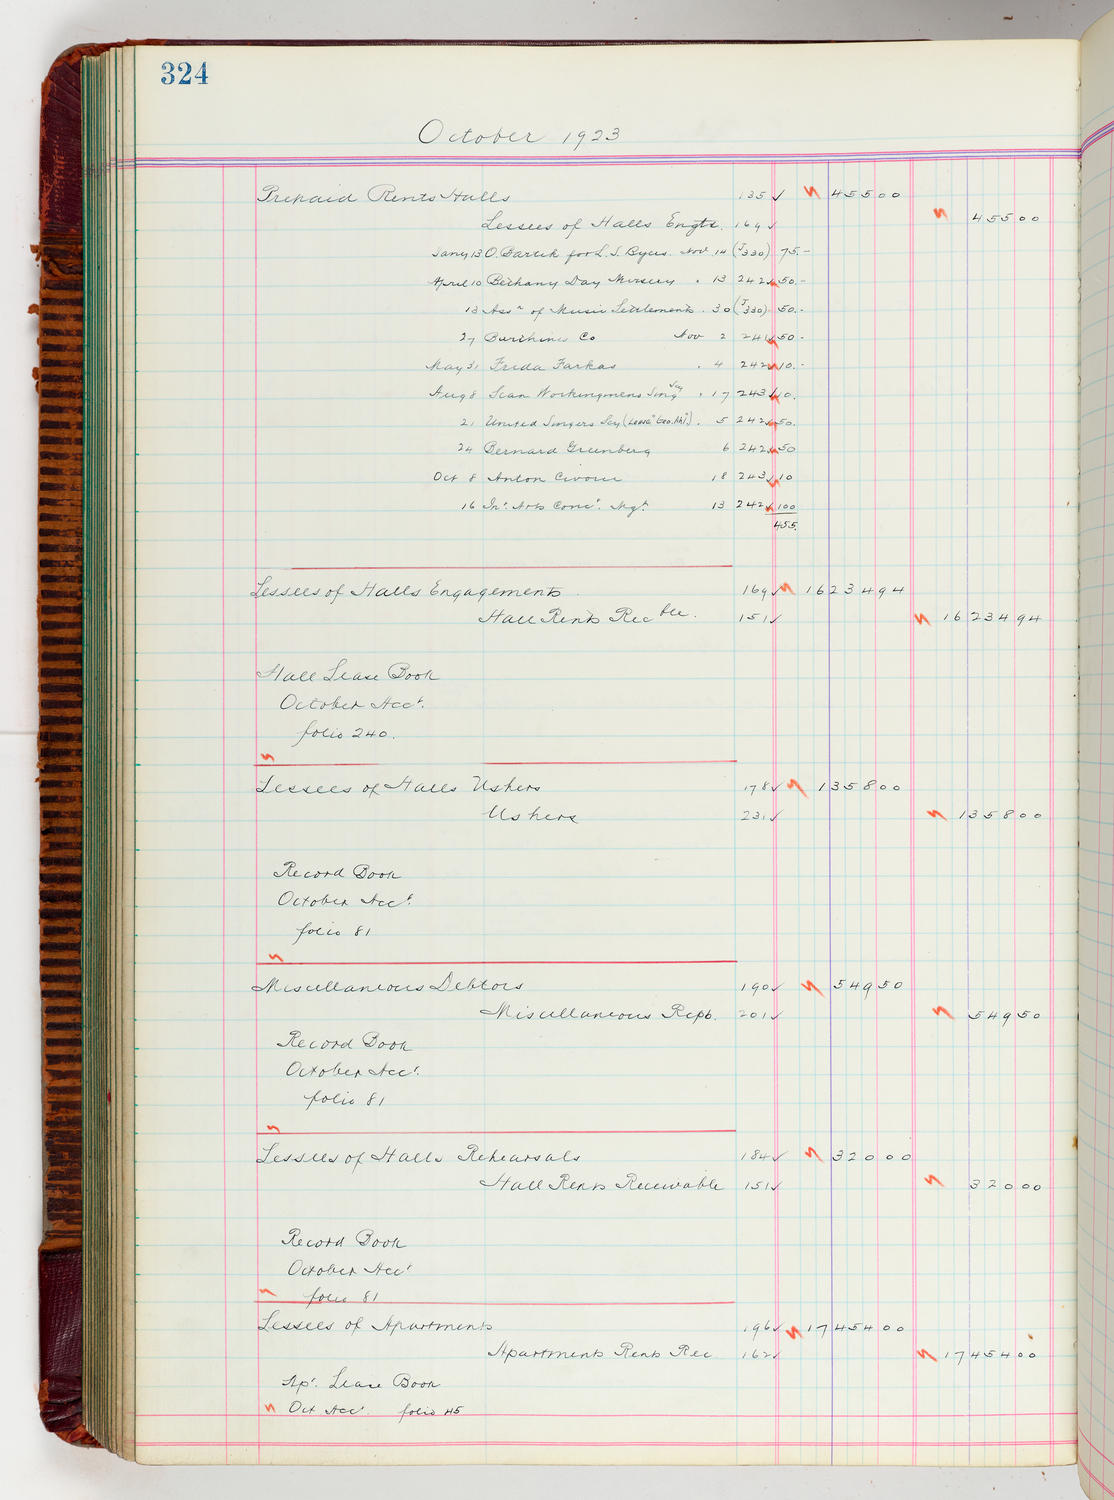 324
October 1923
Prepaid Rents Halls 135 ✓ 455 00
Lessees of Halls Engts. 169 ✓ 455 00
Jany 13 O. Bartik for L. S. Byers. Nov 14 (J 330) 75.-
April 10 Bethany Day Nursery . 13 242 ✓ 50.-
13 Assn of Music Settlements . 30 (J 330) 50.-
27 Co Nov 2 241 ✓ 50 -
May 31 Frida Farkas . 4 242 ✓ 10.-
Aug 8 Scan Workingmens Sing Soy . 17 243 ✓ 10.
21 United Singers Soy . 5 242 ✓ 50.
24 Bernard Greenberg 6 242 ✓ 50
Oct 8 Anton 18 243 ✓ 10
16 Int. Arts Conc't. Mgt. 13 242 ✓ 100
455.
Lessees of Halls Engagements 169 ✓ 16234 94
Hall Rents Recble. 151 ✓ 16234 94
Hall Lease Book
October Acct.
folio 240.
Lessees of Halls Ushers 178 ✓ 1358 00
Ushers 231 ✓ 1358 00
Record Book
October Acct.
folio 81
Miscellaneous Debtors 190 ✓ 549 50
Miscellaneous Rcpts. 201 ✓ 549 50
Record Book
October Acct.
folio 81
Lessees of Halls Rehearsals 184 ✓ 320 00
Hall Rents Receivable 151 ✓ 320 00
Record Book
October Acct
folio 81
Lessees of Apartments 196 ✓ 17454 00
Apartments Rents Rec 162 ✓ 17454 00
Apt. Lease Book
Oct Acct. folio 45